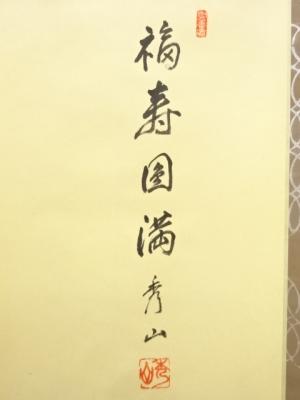 福寿圓満
秀山